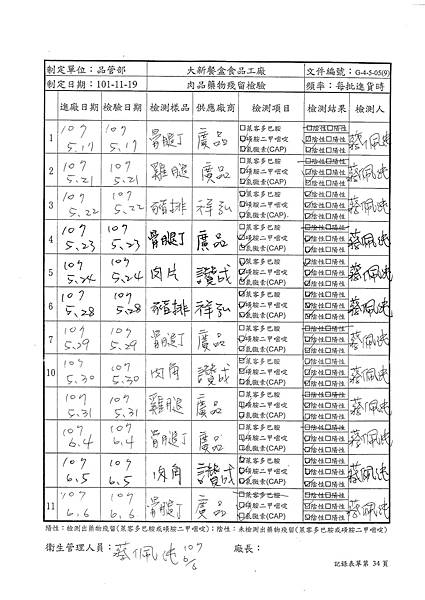 制定單位：品管部 大新餐盒食品工廠 文件編號：G-4-5-05(9)
制定日期：101-11-19 肉品藥物殘留檢驗 頻率：每批進貨時
進廠日期 檢驗日期 檢測樣品 供應廠商 檢測項目 檢測結果 檢測人
1 107 5.17 107 5.19 骨腿丁 廣品 □萊客多巴胺 □陰性□陽性 蔡佩純
□磺胺二甲嘧啶 □陰性□陽性
□氯黴素(CAP) ☑陰性□陽性
2 107 5.21 107 5.21 雞腿 廣品 □萊客多巴胺 □陰性□陽性 蔡佩純
☑磺胺二甲嘧啶 ☑陰性□陽性
□氯黴素(CAP) □陰性□陽性
3 107 5.22 107 5.22 豬排 祥弘 □萊客多巴胺 □陰性□陽性 蔡佩純
☑磺胺二甲嘧啶 ☑陰性□陽性
□氯黴素(CAP) □陰性□陽性
4 107 5.23 107 5.23 骨腿丁 廣品 □萊客多巴胺 □陰性□陽性 蔡佩純
☑磺胺二甲嘧啶 ☑陰性□陽性
☑氯黴素(CAP) ☑陰性□陽性
5 107 5.24 107 5.24 肉片 讚成 □萊客多巴胺 □陰性□陽性 蔡佩純
☑磺胺二甲嘧啶 ☑陰性□陽性
☑氯黴素(CAP) ☑陰性□陽性
6 107 5.28 107 5.28 豬排 祥弘 □萊客多巴胺 □陰性□陽性 蔡佩純
☑磺胺二甲嘧啶 ☑陰性□陽性
☑氯黴素(CAP) ☑陰性□陽性
7 107 5.29 107 5.29 骨腿丁 廣品 □萊客多巴胺 □陰性□陽性 蔡佩純
□磺胺二甲嘧啶 □陰性□陽性
☑氯黴素(CAP) ☑陰性□陽性
10 107 5.30 107 5.30 肉角 讚成 ☑萊客多巴胺 ☑陰性□陽性 蔡佩純
□磺胺二甲嘧啶 □陰性□陽性
☑氯黴素(CAP) ☑陰性□陽性
107 5.31 107 5.31 雞腿 廣品 □萊客多巴胺 □陰性□陽性 蔡佩純
□磺胺二甲嘧啶 □陰性□陽性
☑氯黴素(CAP) ☑陰性□陽性
107 6.4 107 6.4 骨腿丁 廣品 □萊客多巴胺 □陰性□陽性 蔡佩純
□磺胺二甲嘧啶 □陰性□陽性
☑氯黴素(CAP) ☑陰性□陽性
107 6.5 107 6.5 肉角 讚成 □萊客多巴胺 □陰性□陽性 蔡佩純
☑磺胺二甲嘧啶 ☑陰性□陽性
☑氯黴素(CAP) ☑陰性□陽性
11 107 6.6 107 6.6 骨腿丁 廣品 □萊客多巴胺 □陰性□陽性 蔡佩純
□磺胺二甲嘧啶 □陰性□陽性
☑氯黴素(CAP) ☑陰性□陽性
陽性：檢測出藥物殘留(萊客多巴胺或磺胺二甲嘧啶)；陰性：未檢測出藥物殘留(萊客多巴胺或磺胺二甲嘧啶)
衛生管理人員：蔡佩純 107 6/6 廠長：
記錄表單第 34 頁